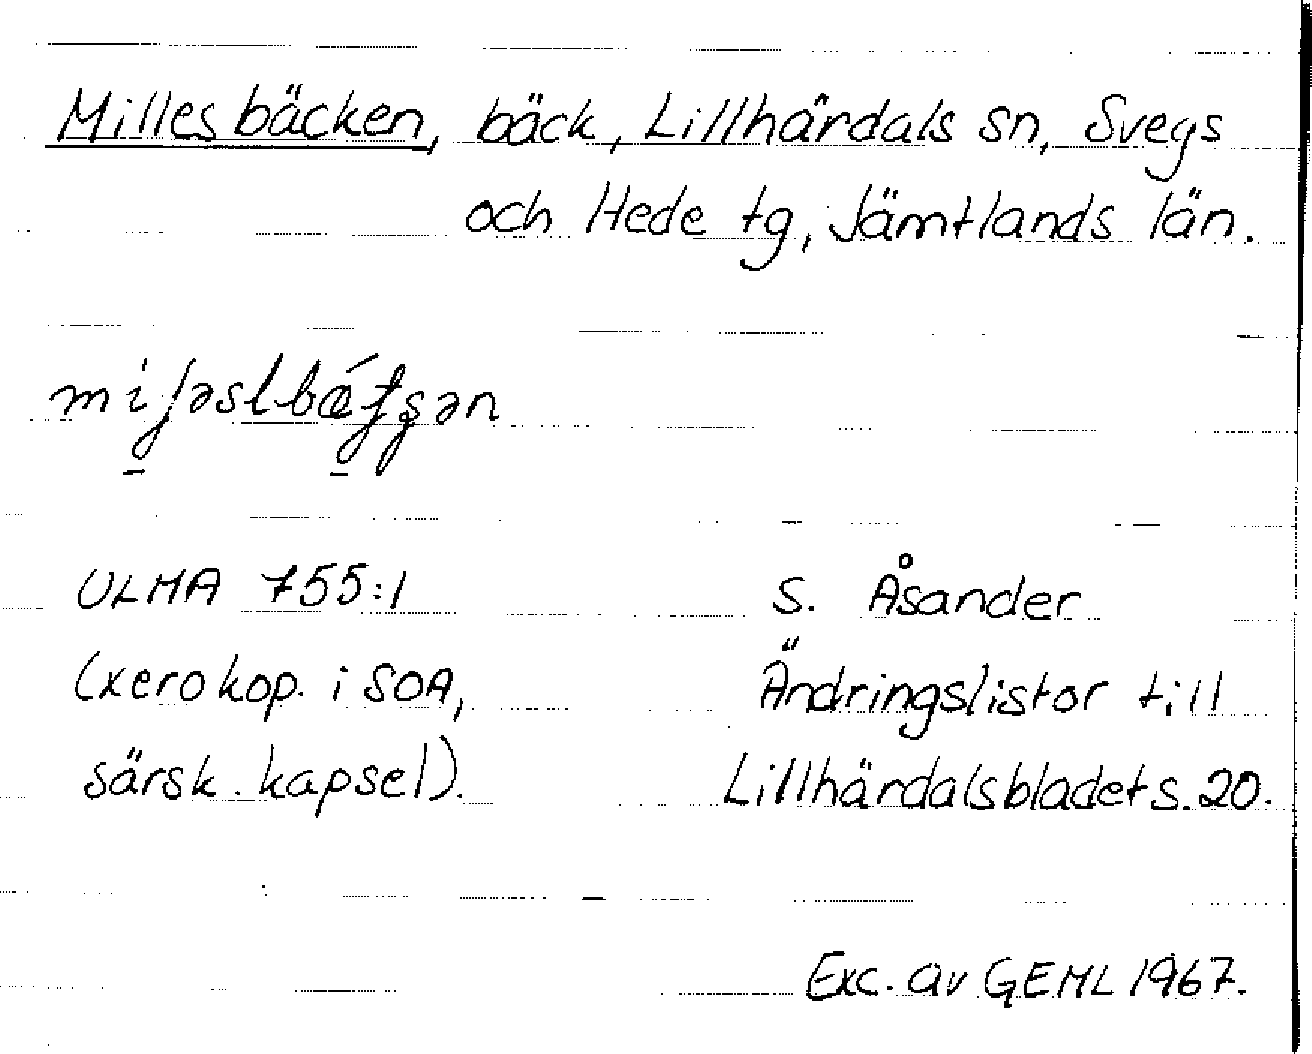 Millesbäcken, bäck, Lillhärdals sn, Svegs
och Hede tg, Jämtlands län.
ULMA 755:1
(xerokop. i SOA,
särsk. kapsel).
S. Åsander
Ändringslistor till
Lillhärdalsbladet s. 20.
Exc. av GEML 1967.